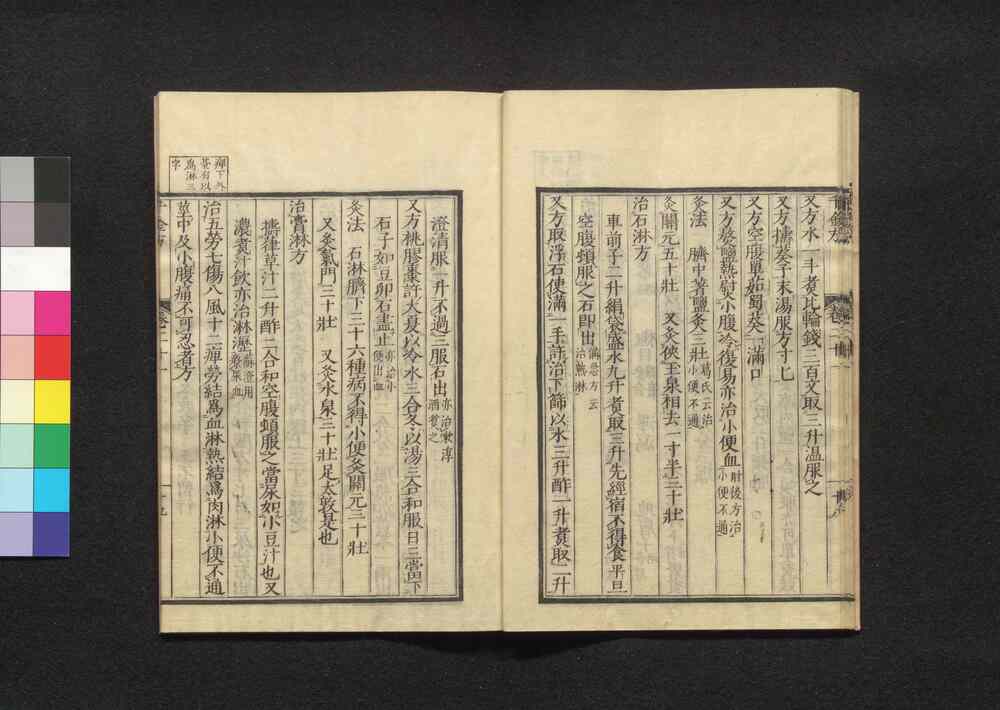 又方水一斗煮比輪錢三百文取三升温服之
又方擣葵子末湯服方寸匕
又方空腹單茹蜀葵一滿口
又方熬鹽熱熨小腹冷復易亦治小便血肘後方治小便不通
灸法　臍中著鹽灸三壯葛氏云治小便不通
灸關元五十壯　又灸俠玉泉相去一寸半三十壯
治石淋方
車前子二升絹袋盛水九升煮取三升先經宿不得食平旦
空腹頓服之石即出備急方云治熱淋
又方取浮石使滿一手許治下篩以水三升酢一升煮取二升
澄清服一升不過三服石出亦治嗽淳酒煮之
又方桃膠棗許大夏以冷水三合冬以湯三合和服日三當下
石子如豆卵石盡止亦治小便出血
灸法　石淋臍下三十六種病不得小便灸關元三十壯
又灸氣門三十壯　又灸水泉三十壯足太敦是也
治膏淋方
擣葎草汁二升酢二合和空腹頓服之當尿如小豆汁也又
濃煮汁飲亦治淋瀝蘇澄用療尿血
治五勞七傷八風十二痺勞結爲血淋熱結爲肉淋小便不通
莖中及小腹痛不可忍者方
痺下外
臺有以
爲淋三
字